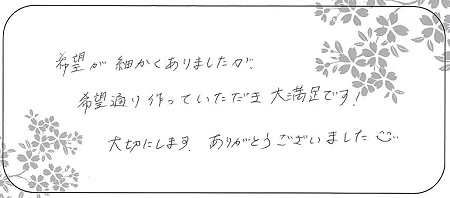 希望が細かくありましたが、
希望通り作っていただき大満足です!
大切にします。ありがとうございました